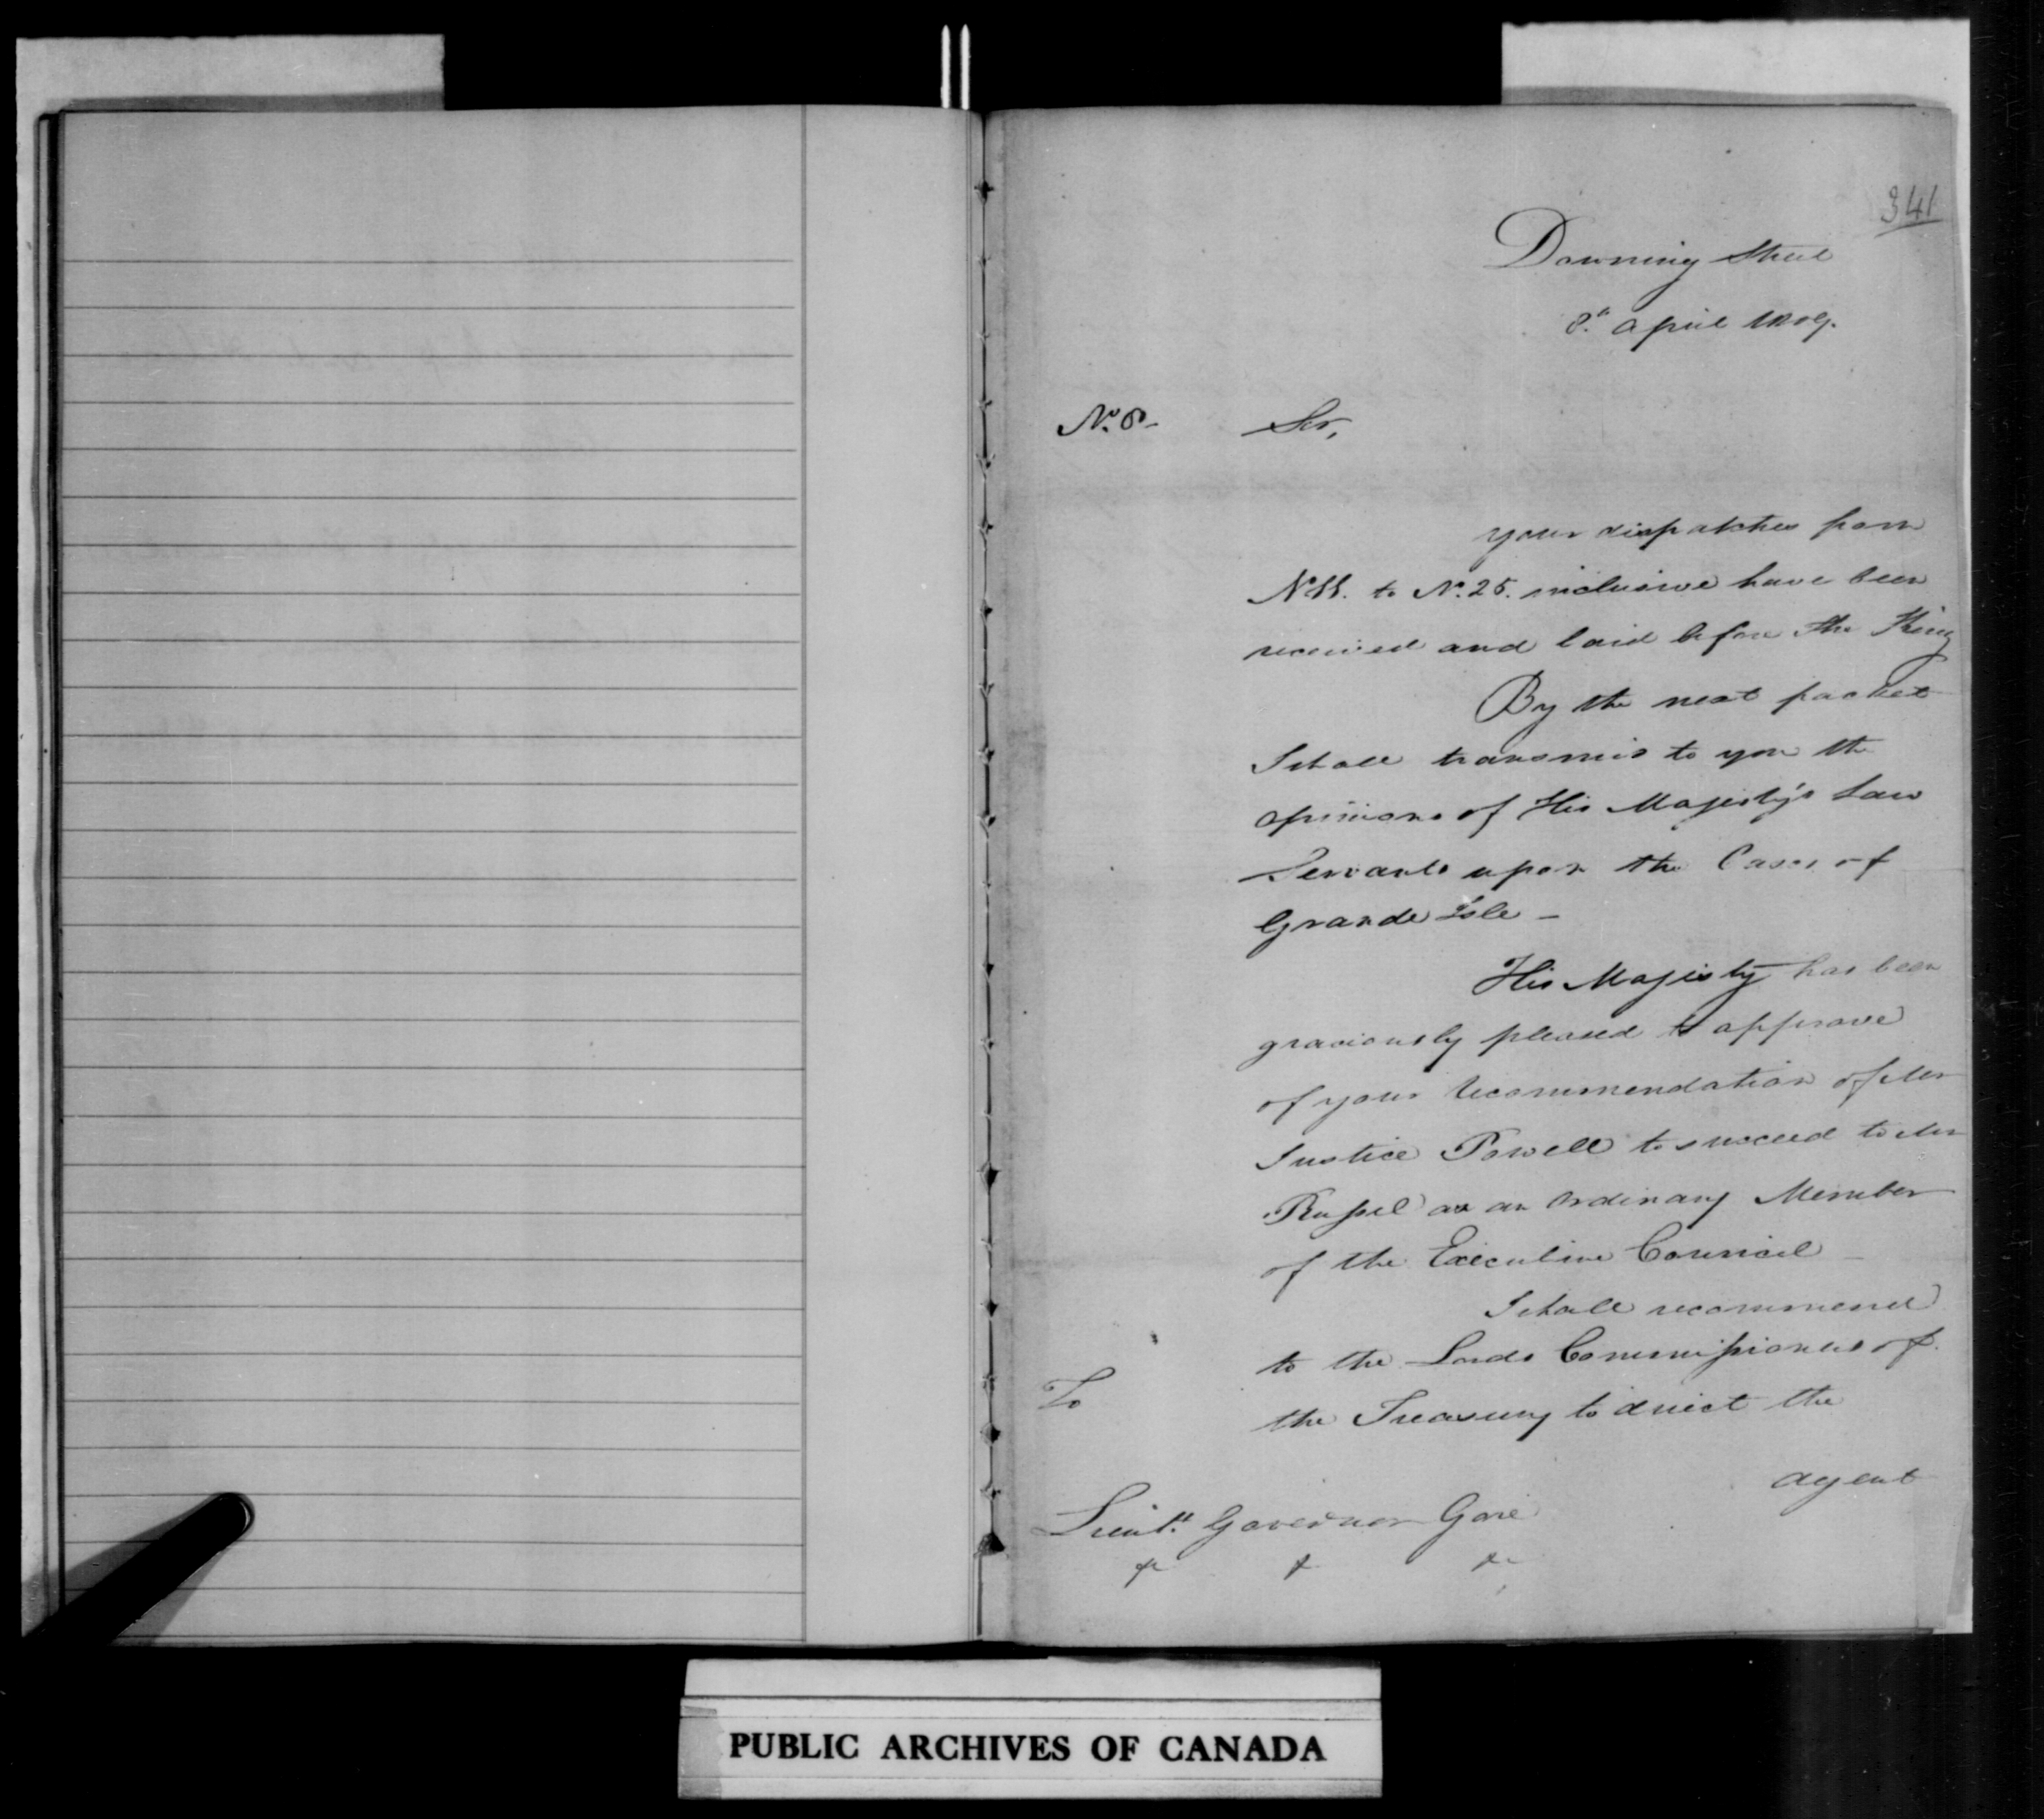 341
Downing Street
8.th April 1809.
No. 8- Sir,
your dispatches from
No. to No. 25. inclusive have been
received and laid before the King
By the next packet
I shall transmit to you the
opinions of His Majesty's Law
Servants upon the Cases of
Grande Isle -
His Majesty has been
graciously pleased to approve
of your recommendation of Mr
Justice Powell to succeed to Mr
Russel as an Ordinary Member
of the Executive Council -
I shall recommend
to the Lords Commissioners of
the Treasury to direct the
agent
To
Lieut.t Governor Gore
&c & &c
PUBLIC ARCHIVES OF CANADA